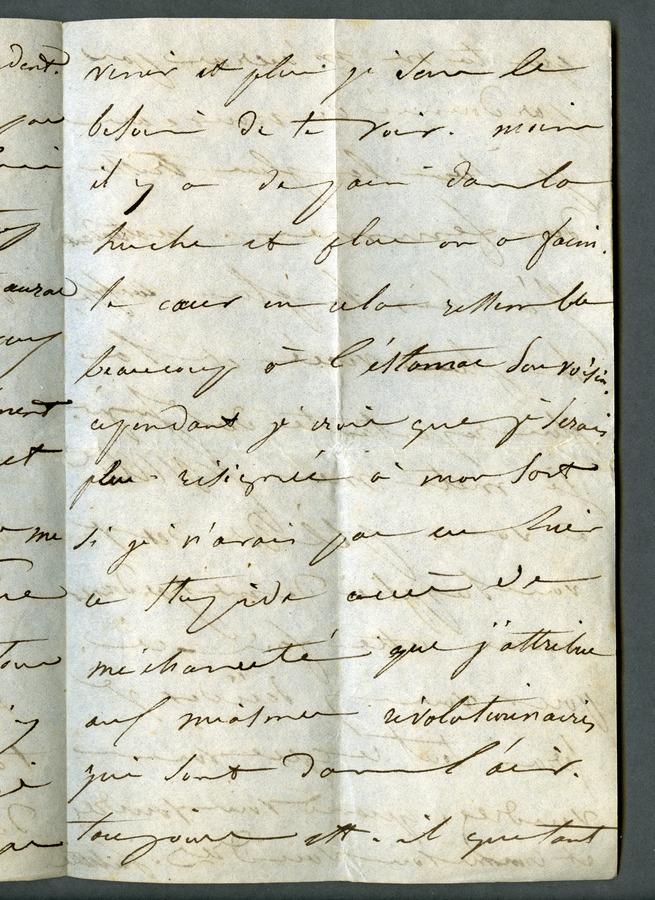 dent.
venir et plus je sens le
besoin de te voir. moins
il y a de pain dans la
huche et plus on a faim.
le cœur en cela ressemble
beaucoup à l'éstomac son voisin.
cependant je crois que je serais
ment
et
plus résignée à mon sort
me
si je n'avais pas eu hier
ce stupide accès de
méchanceté que j'attribue
aux miasmes révolutionnaires
qui sont dans l'air.
toujours est-il que tant